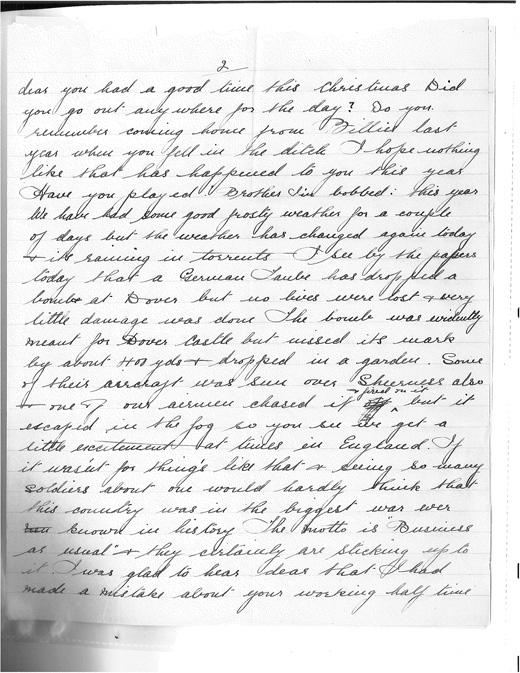 2
dear you had a good time this Christmas Did
you go out anywhere for the day? Do you
remember coming home from Billies last
year when you fell in the ditch I hope nothing
like that has happened to you this year
Have you played "Brother I'm bobbed" this year
We have had some good frosty weather for a couple
of days but the weather has changed again today
& its raining in torrents - I see by the papers
today that a German Taube has dropped a
bomb at Dover but no lives were lost & very
little damage was done The bomb was evidently
meant for Dover Castle but missed its mark
by about 400 yds & dropped in a garden. Some
of their aircraft was seen over Sheerness also
& fired on it
& one of our airmen chased it but it
escaped in the fog so you see we get a
little excitement at times in England. If
it wasnt for things like that & seeing so many
soldiers about one would hardly think that
this country was in the biggest war ever
known in history The motto is Business
as usual & they certainly are sticking up to
it. I was glad to hear dear that I had
made a mistake about your working half time